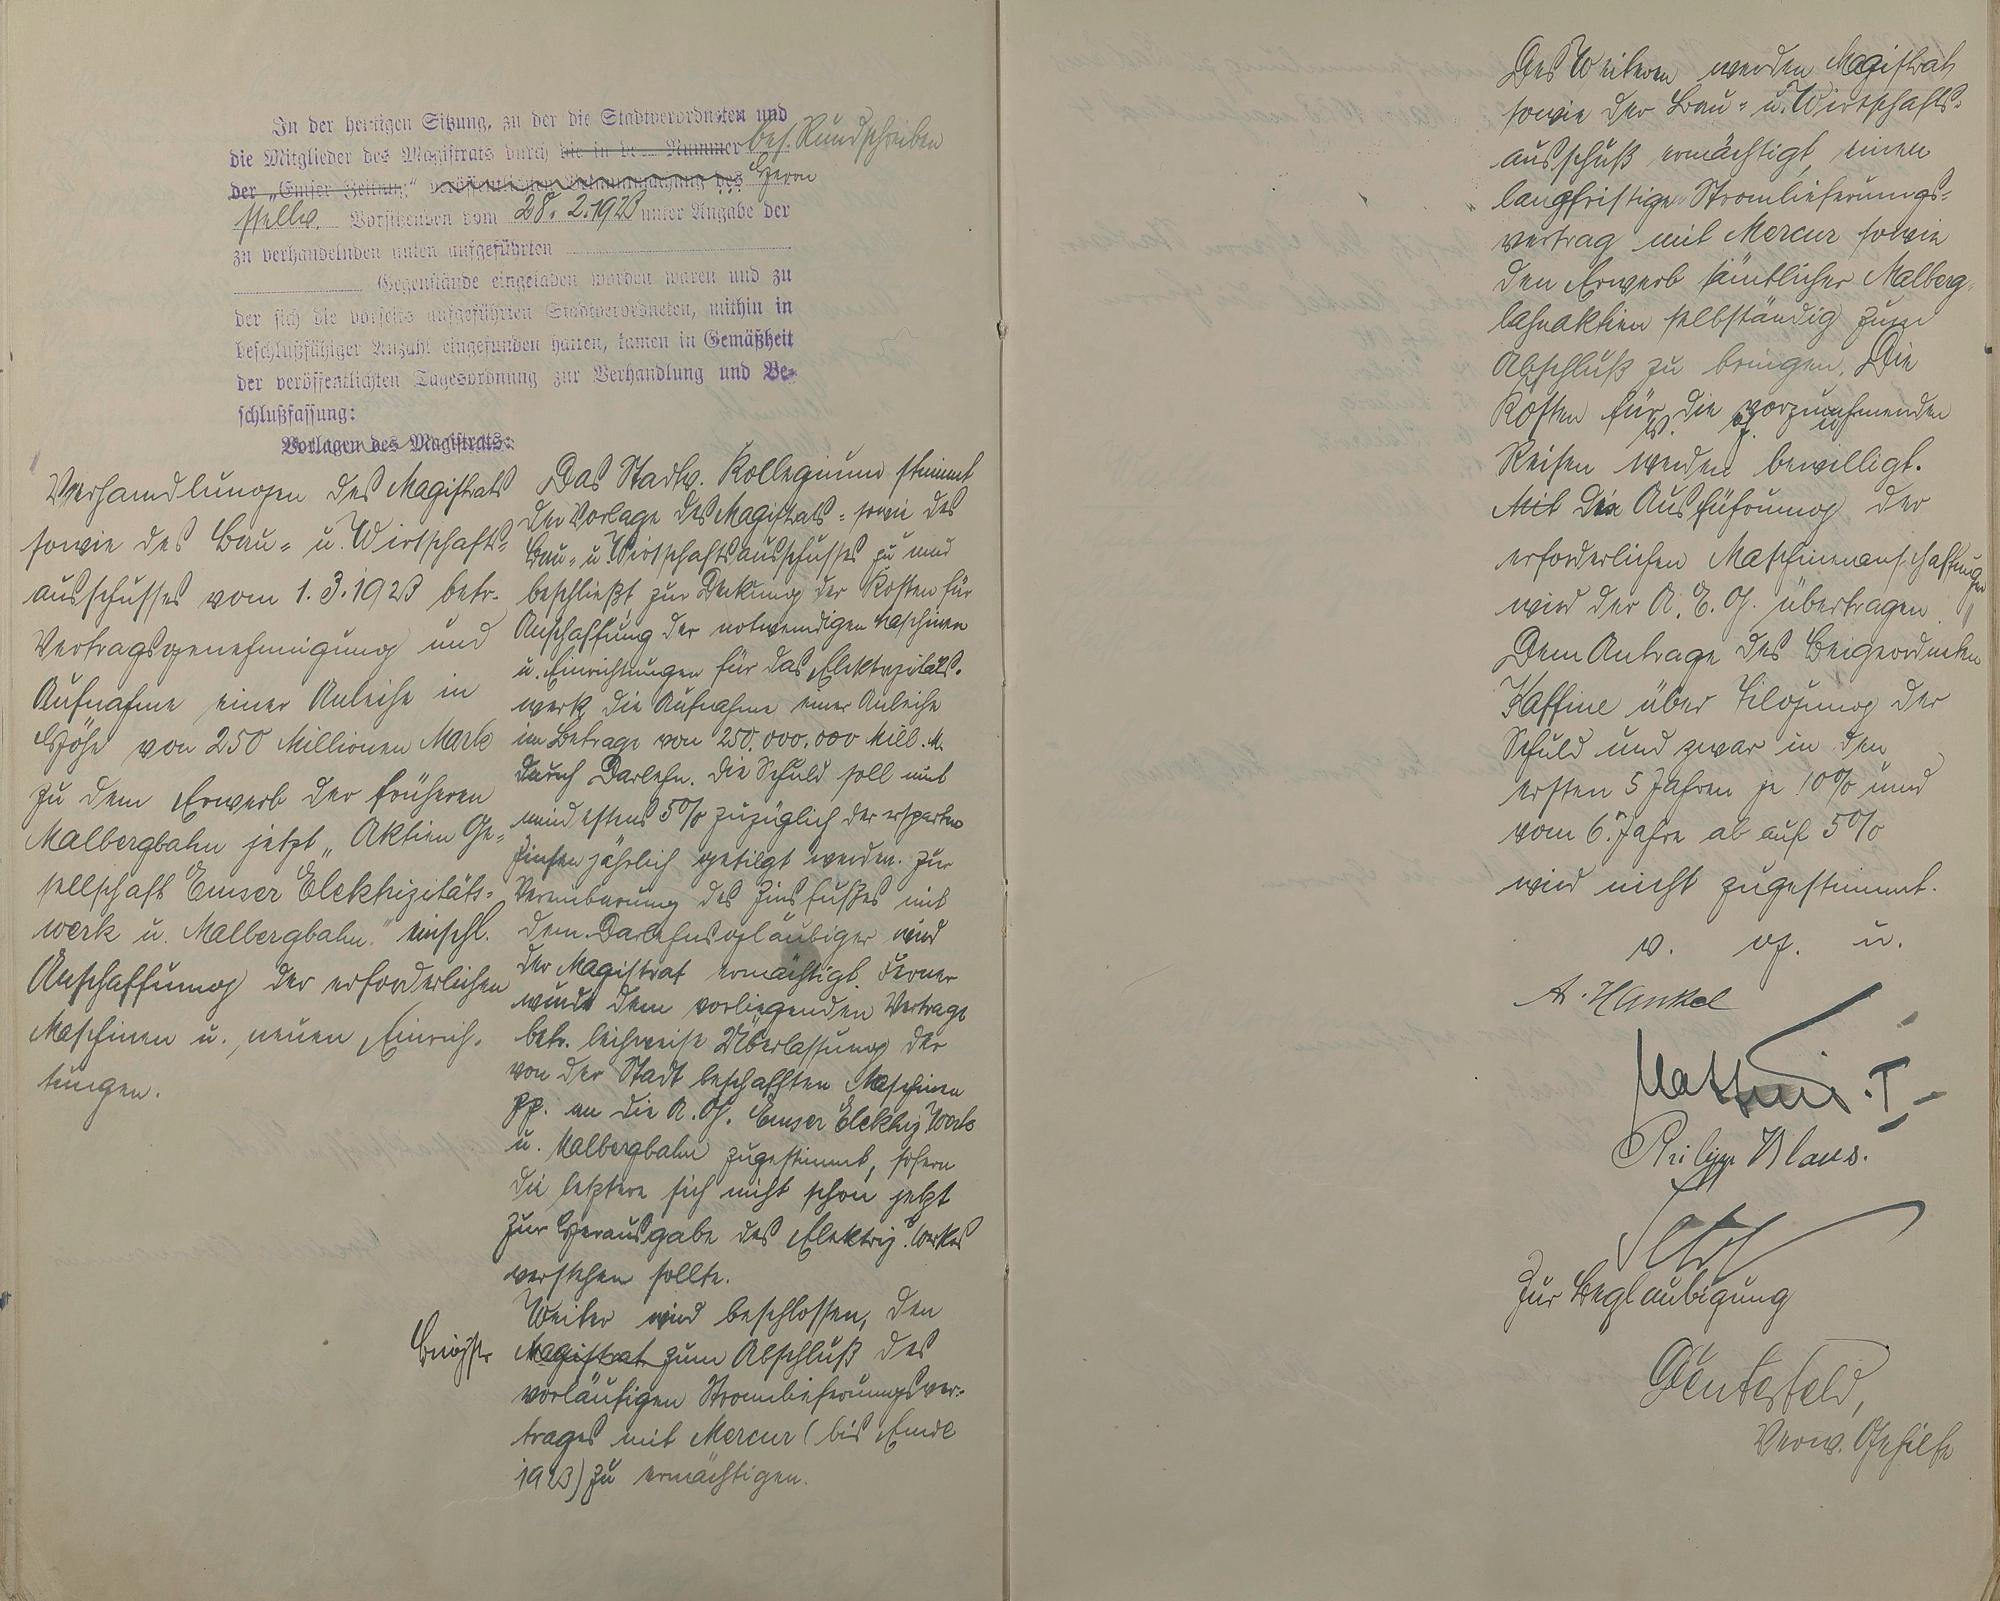 In der heutigen Sitzung, zu der die Stadtverordneten und
die Mitglieder des Magistrats durch die in de... Nummer bes. Rundschreiben
der „Emser Zeitung“ veröffentlichten Bekanntmachung des Herrn
stellv. Vorsitzenden vom 28. 2. 1923 unter Angabe der
zu verhandelnden unten aufgeführten
Gegenstände eingeladen worden waren und zu
der sich die vorseits aufgeführten Stadtverordneten, mithin in
beschlußfähiger Anzahl eingefunden hatten, kamen in Gemäßheit
der veröffentlichten Tagesordnung zur Verhandlung und Be-
schlußfassung:
Vorlagen des Magistrats:
Verhandlungen des Magistrats
sowie des Bau- u. Wirtschafts-
ausschusses vom 1. 3. 1923 betr.
Vertragsgenehmigung und
Aufnahme einer Anleihe in
Höhe von 250 Millionen Mark
zu dem Erwerb der früheren
Malbergbahn jetzt „Aktien Ge-
sellschaft Emser Elektrizitäts-
werk u. Malbergbahn.“ einschl.
Anschaffung der erforderlichen
Maschinen u. neuen Einrich-
tungen.
Das Stadtv. Kollegium stimmt
der Vorlage des Magistrats- sowie des
Bau- u. Wirtschaftsausschusses zu und
beschließt zur Deckung der Kosten für
Anschaffung der notwendigen Maschinen
u. Einrichtungen für das Elektrizitäts-
werk die Aufnahme einer Anleihe
im Betrage von 250.000.000 Mill. M.
durch Darlehn. Die Schuld soll mit
mindestens 5% zuzüglich der ersparten
Zinsen jährlich getilgt werden. Zur
Vereinbarung des Zinsfußes mit
dem Darlehnsgläubiger wird
der Magistrat ermächtigt. Ferner
wurde dem vorliegenden Vertrage
betr. leihweise Überlassung der
von der Stadt beschafften Maschinen
pp. an die A. G. Emser Elektriz Werk
u. Malbergbahn zugestimmt, sofern
die letztere sich nicht schon jetzt
zur Herausgabe des Elektriz. Werkes
verstehen sollte.
Weiter wird beschlossen, den
Magistrat zum Abschluß des
vorläufigen Stromlieferungsver-
trages mit Mercur (bis Ende
1923) zu ermächtigen.
Des Weiteren werden Magistrat
sowie der Bau- u. Wirtschafts-
ausschuß ermächtigt, einen
langfristigen Stromlieferungs-
vertrag mit Mercur sowie
den Erwerb sämtlicher Malberg-
bahnaktien selbständig zum
Abschluß zu bringen. Die
Kosten für die vorzunehmenden
v. g. u.
Reisen werden bewilligt.
Mit die Ausführung der
erforderlichen Maschinenanschaffungen
wird der A. E. G. übertragen.
Dem Antrage des Beigeordneten
Kaffine über Tilgung der
Schuld und zwar in den
ersten 5 Jahren je 10% und
vom 6. Jahre ab auf 5%
wird nicht zugestimmt.
v. g. u.
A. Hankel
Philipp Klaus.
Zur Beglaubigung
Verw. Gehilfe